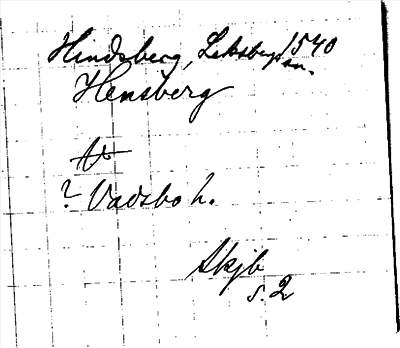 Hindsberg, Leksbergs sn. 1540
Hensberg
? Vadsbo h.
Skjb
s. 2